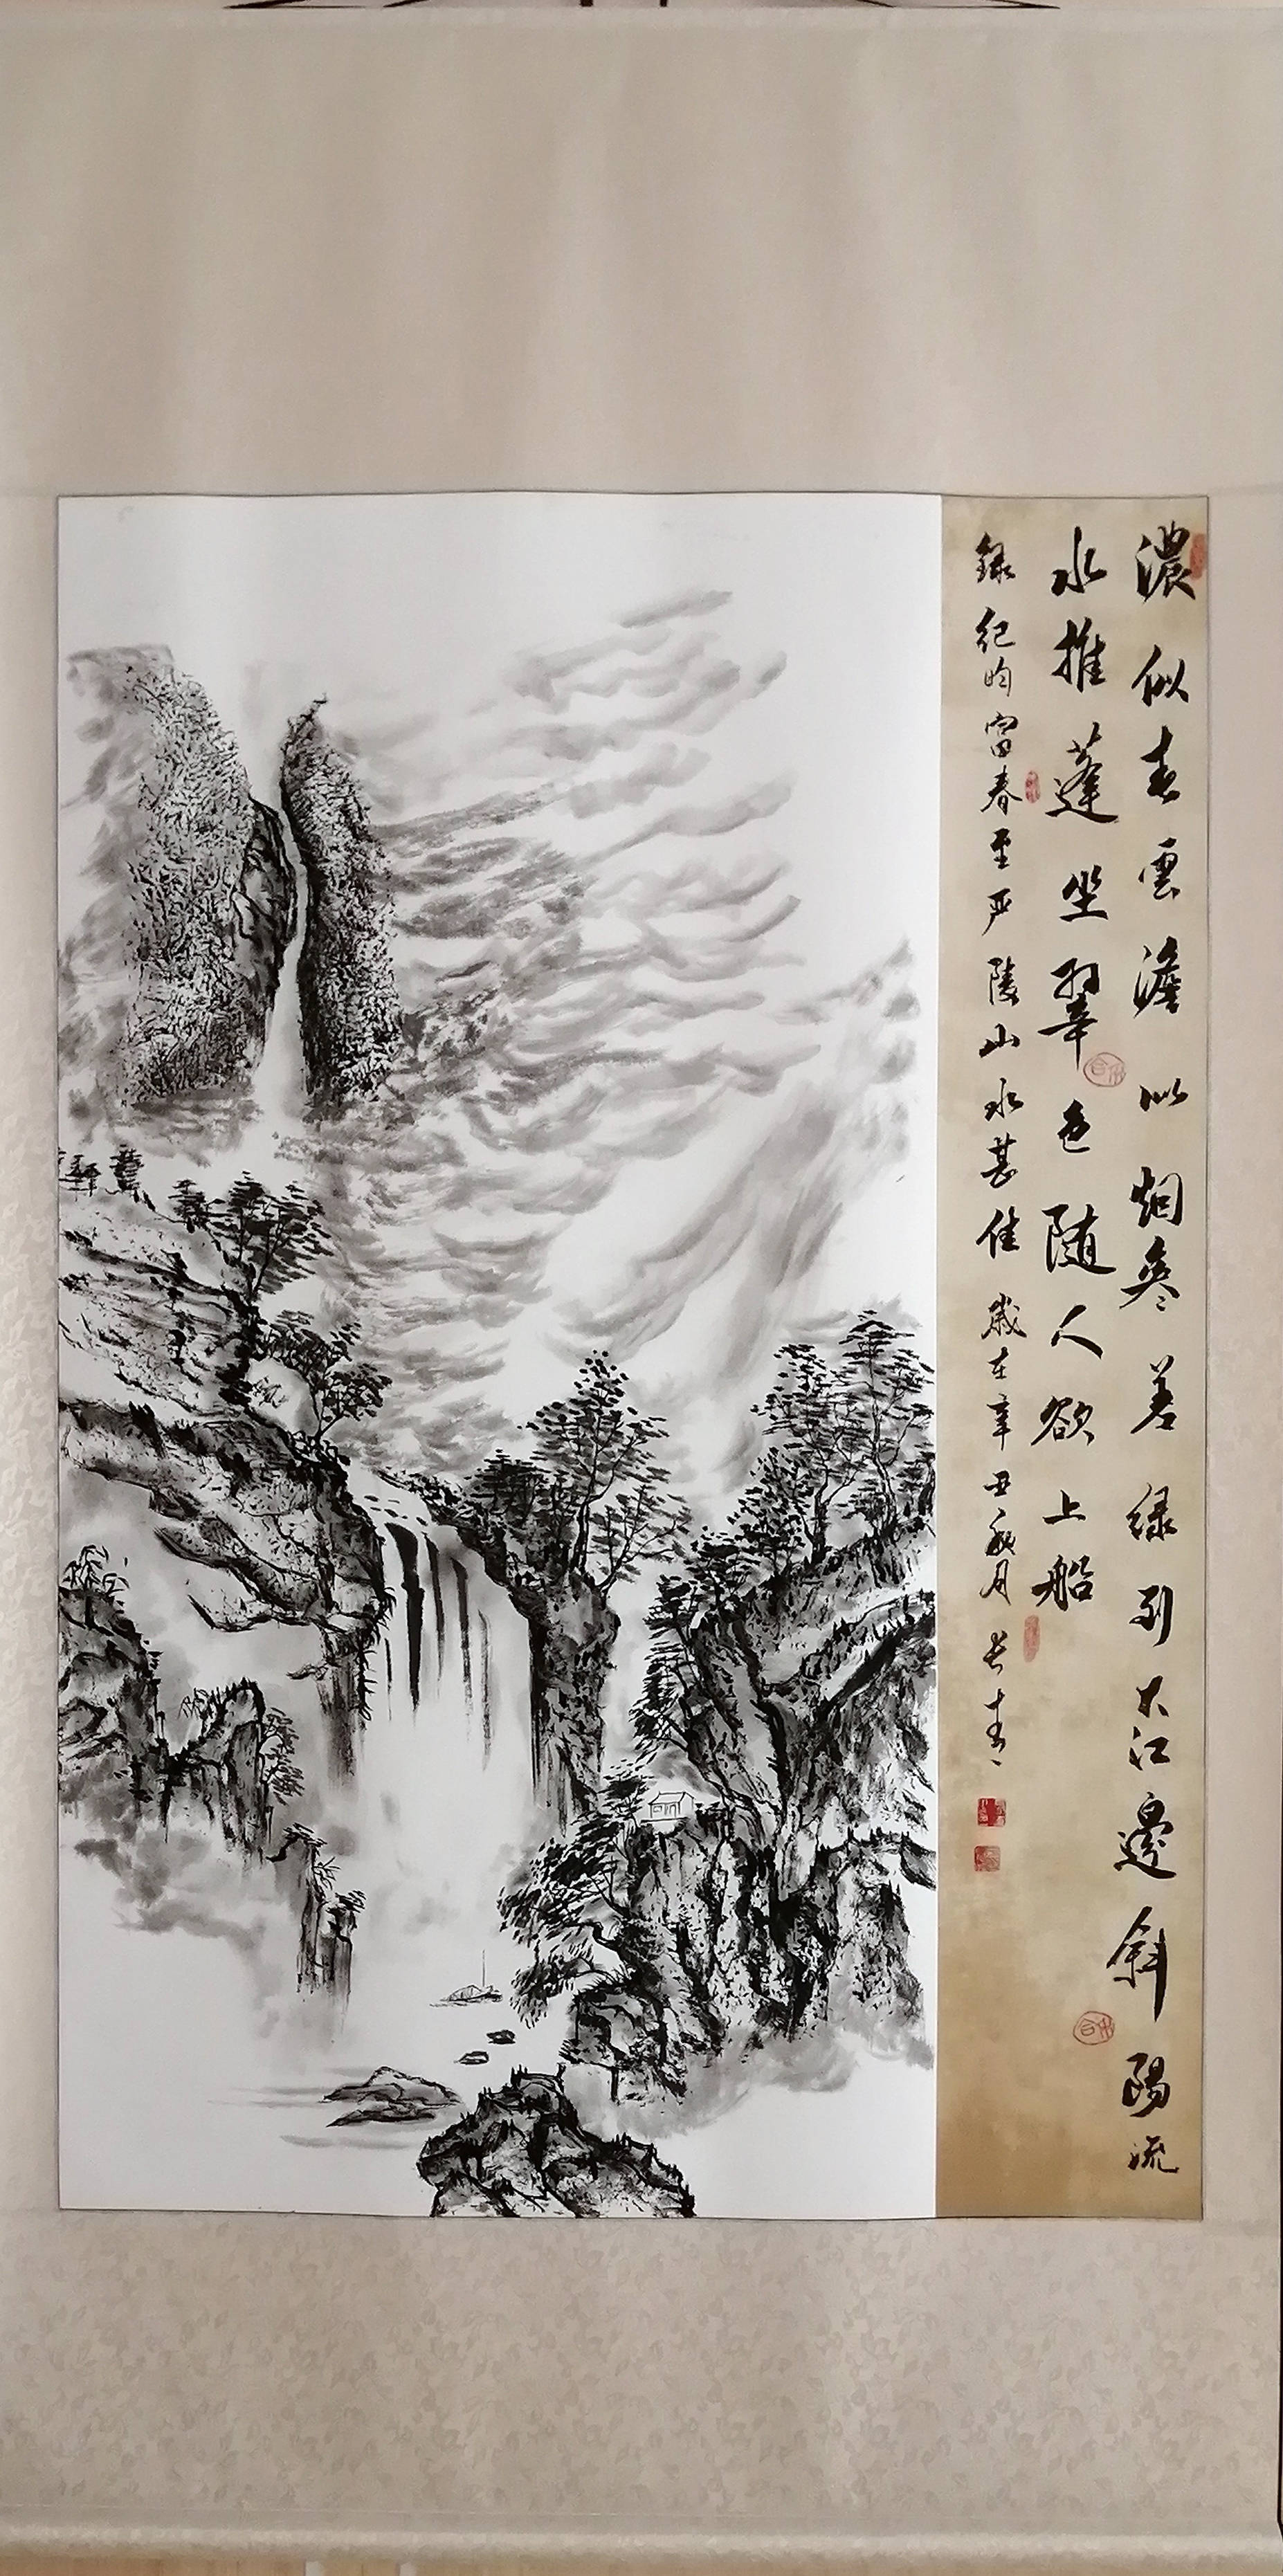 濃似春雲澹似烟参差绿到大江邊斜陽流
水推蓬坐翠色随人欲上船
録纪昀富春至严陵山水甚佳 歲在辛丑秋月